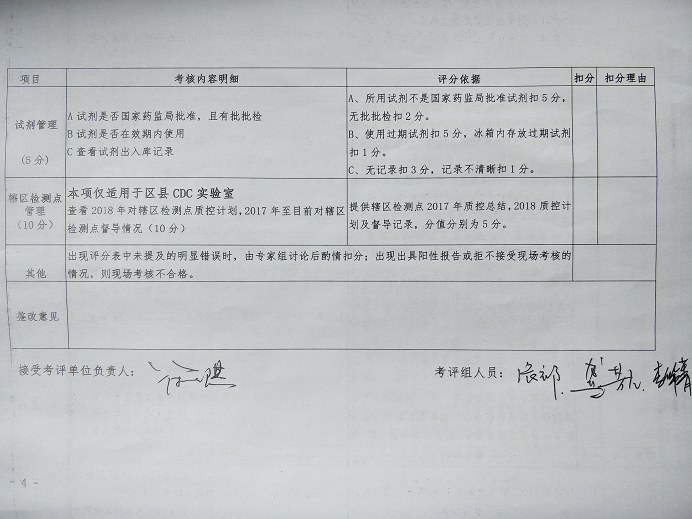 项目 考核内容明细 评分依据 扣分 扣分理由
试剂管理
(5分)
A 试剂是否国家药监局批准，且有批批检
B 试剂是否在效期内使用
C 查看试剂出入库记录
A、所用试剂不是国家药监局批准试剂扣5分，
无批批检扣2分。
B、使用过期试剂扣5分，冰箱内存放过期试剂
扣1分。
C、无记录扣3分，记录不清晰扣1分。
辖区检测点
管理
(10分)
本项仅适用于区县 CDC 实验室
查看2018年对辖区检测点质控计划，2017年至目前对辖区
检测点督导情况（10分）
提供辖区检测点2017年质控总结，2018质控计
划及督导记录，分值分别为5分。
其他
出现评分表中未提及的明显错误时，由专家组讨论后酌情扣分；出现出具阳性报告或拒不接受现场考核的
情况，则现场考核不合格。
整改意见
接受考评单位负责人： 考评组人员：
- 4 -